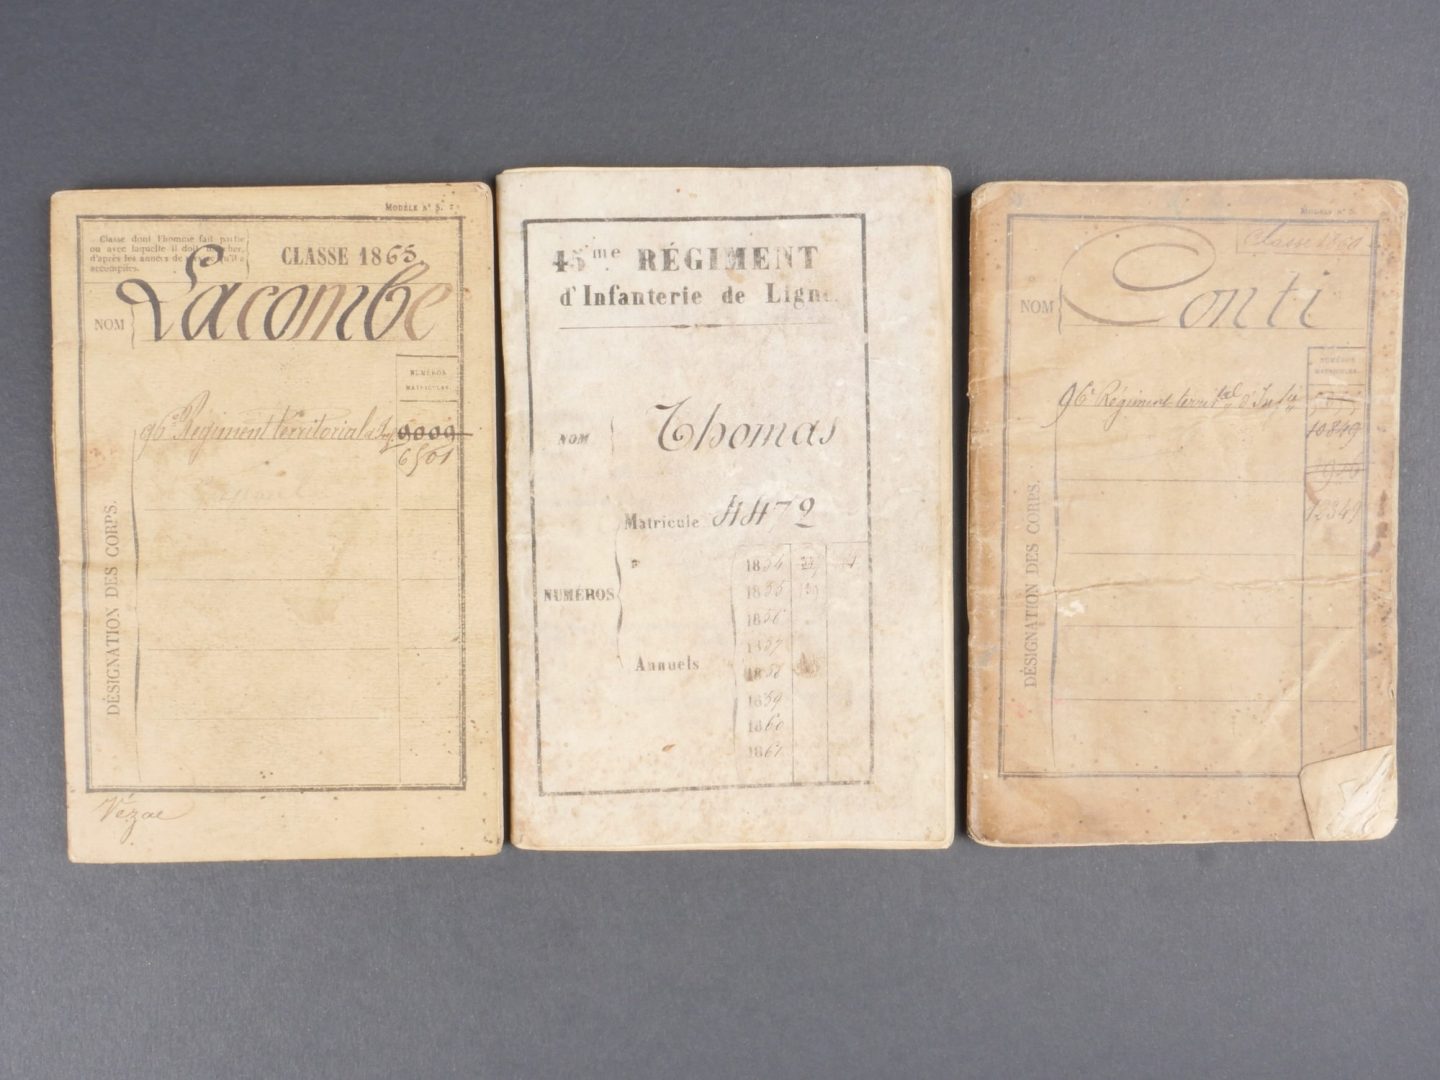 MODÈLE N° 5.
Classe dont l'homme fait partie
ou avec laquelle il doit marcher,
d'après les années de service qu'il a
accomplies.
CLASSE 1865
NOM Lacombe
NUMÉROS
MATRICULES.
96e Régiment territorial d'Inf 9009
6501
DÉSIGNATION DES CORPS.
Vézac
45me RÉGIMENT
d'Infanterie de Ligne.
NOM Thomas
Matricule 4472
NUMÉROS
Annuels
1854
1855
1856
1857
1858
1859
1860
1861
MODÈLE N° 5.
Classe 1860
NOM Conti
NUMÉROS
MATRICULES.
96e Régiment territal d'Infie
10849
12349
DÉSIGNATION DES CORPS.